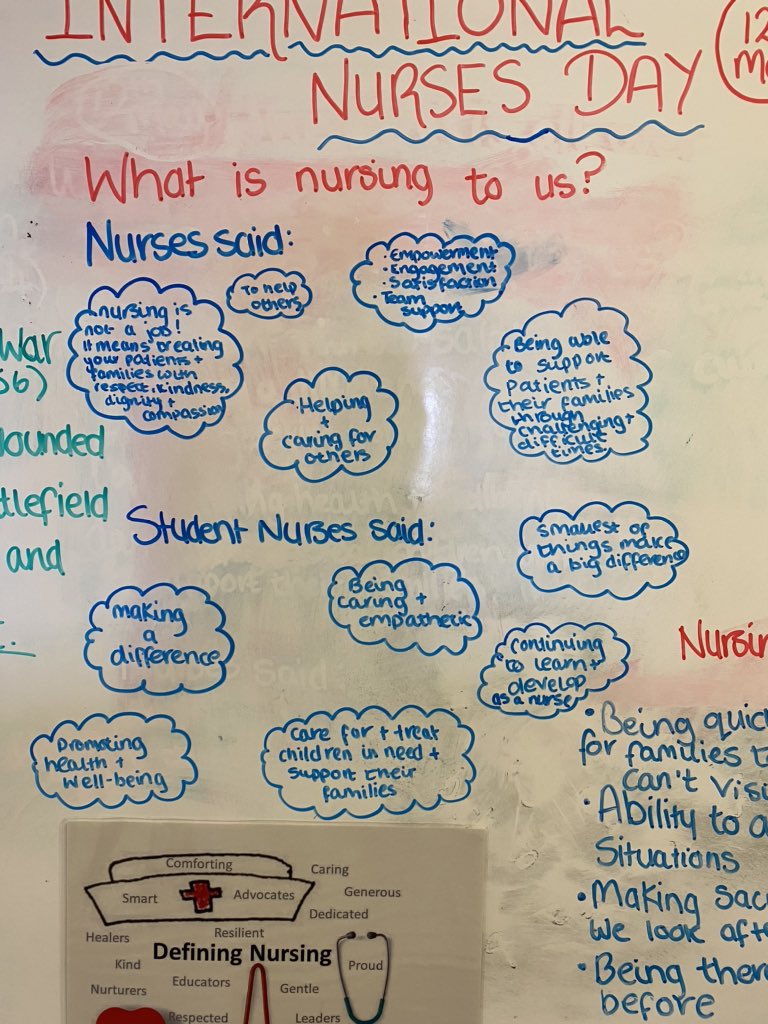 INTERNATIONAL
NURSES DAY
12
What is nursing to us?
Nurses said:
nursing is
not a job!
It means treating
your patients +
families with
respect, kindness,
dignity +
compassion
To help
others
• Empowerment
• Engagement
• Satisfaction
• Team
support
Helping
+
caring for
others
Being able
to support
patients +
their families
through
challenging +
difficult
times
War
56)
tlefield
and
Student Nurses said:
smallest of
things make
a big difference
making
a
difference
Being
caring +
empathetic
continuing
to learn +
develop
as a nurse
Promoting
health +
well-being
care for + treat
children in need +
support their
families
• Being quic
for families t
can't visi
• Ability to a
Situations
• Making sac
we look afte
• Being ther
before
Comforting
Caring
Smart
Advocates
Generous
Dedicated
Resilient
Healers
Defining Nursing
Kind
Proud
Educators
Nurturers
Gentle
Respected
Leaders